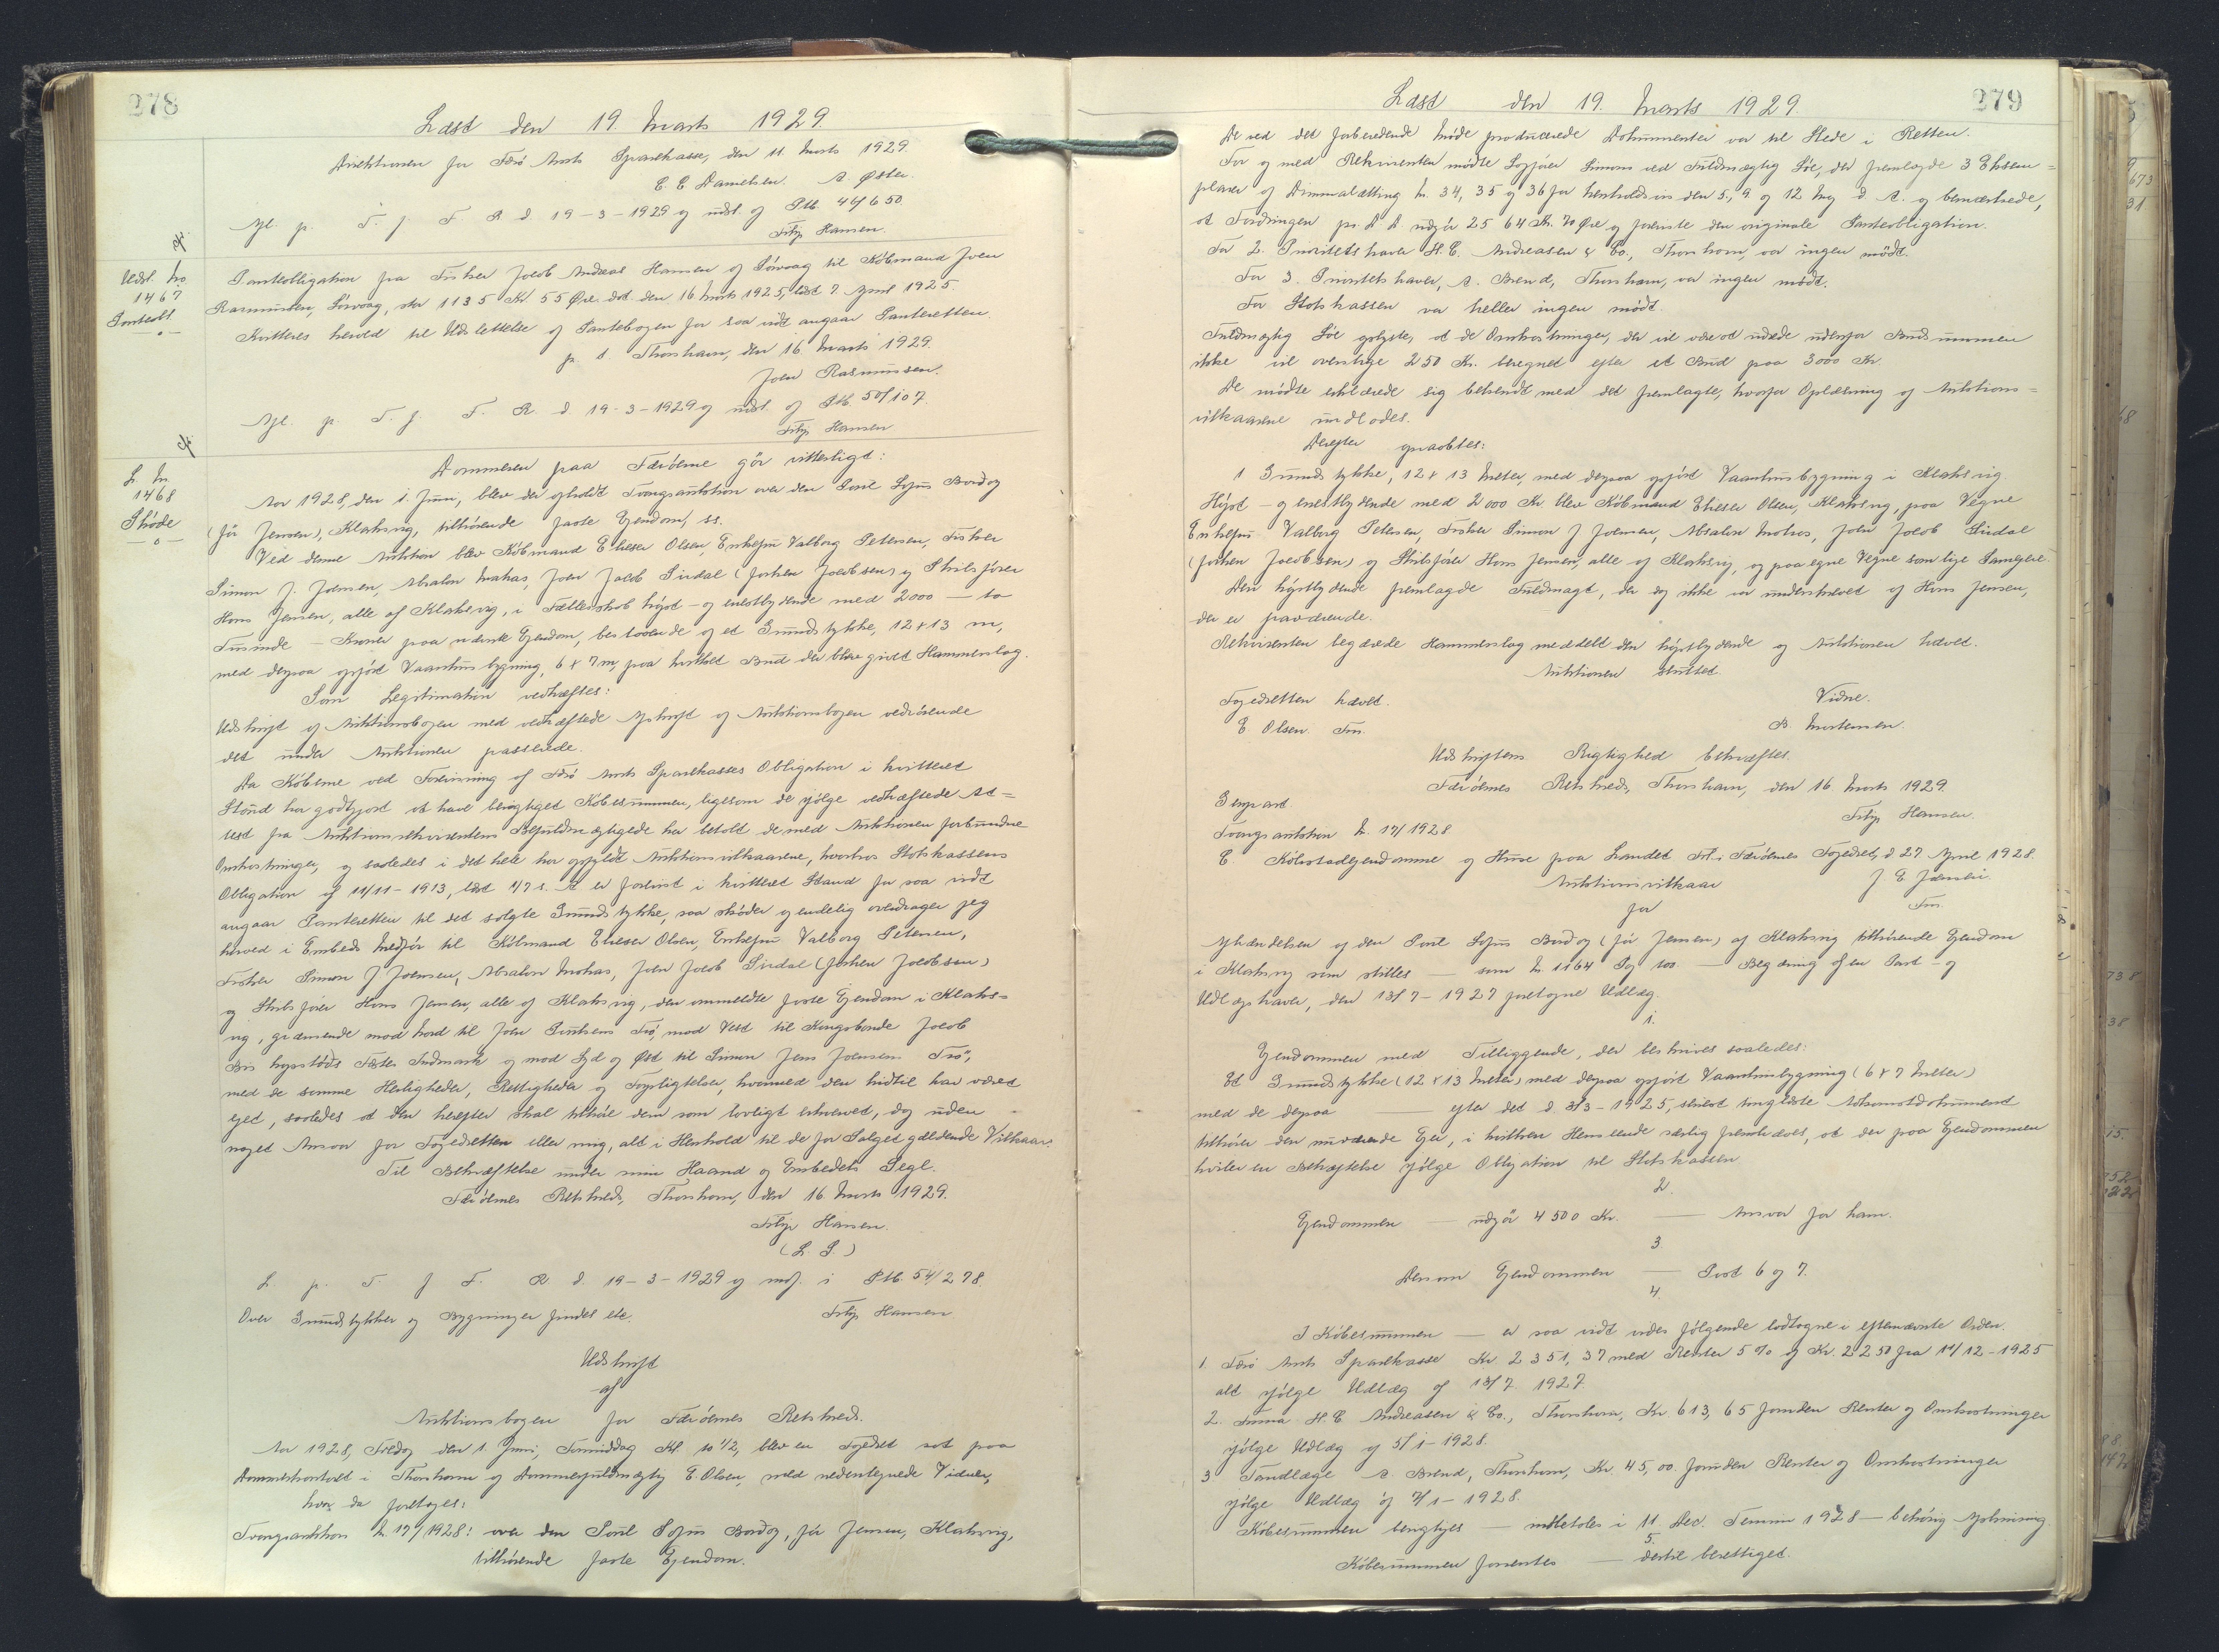 278
Læst den 19. Marts 1929.
Direktionen for Færø Amts Sparekasse, den 11 Marts 1929.
C. C. Danielsen. A. Øster.
Afl. p. T. f. F. R. d 19-3-1929 og udsl. af Ptb. 44/650
Filip Hansen.
Udsl. No
1467
Panteobl.
Panteobligation fra Fisker Jacob Andreas Hansen af Sörvaag til Købmand Joen
Rasmussen, Sörvaag, stor 1135 Kr 55 Øre. dat. den 16 Marts 1925, læst 7 April 1925
Kvitteres herved til Udslettelse af Pantebogen for saa vidt angaar Panteretten.
p. t. Thorshavn, den 16 Marts 1929.
Joen Rasmussen.
Afl. p. T. f. F. R. d 19-3-1929 og udsl. af Ptb. 50/107.
Filip Hansen
L. Nr.
1468
Skøde
Dommeren paa Færöerne gör vitterligt:
Aar 1928, den 1. Juni, blev der afholdt Tvangsauktion over den Poul Sofus Bordoy
(för Jensen), Klaksvig, tilhörende faste Ejendom, ss.
Ved denne Auktion blev Købmand Elieser Olsen, Enkefru Valborg Petersen, Fisker
Simon J. Joensen, Absalon Mohas, Joen Jacob Sirdal (Jochen Jacobsen) og Skibsfører
Hans Jensen, alle af Klaksvig, i Fællesskab höjst- og enestbydende med 2000 — to
Tusinde — Kroner paa nævnte Ejendom, bestaaende af et Grundstykke, 12 x 13 m,
med derpaa opført Vaanhusbygning, 6 x 7 m, paa hvilket Bud der blev givet Hammerslag.
Som Legitimation vedhæftes:
Udskrift af Auktionsbogen med vedhæftede Afskrift af Auktionsbogen vedrörende
det under Auktionen passerede.
Da Köberne ved Forevisning af Færø Amts Sparekasses Obligation i kvitteret
Stand har godtgjort at have berigtiget Købesummen, ligesom de ifølge vedhæftede At=
test fra Auktionsrekvirentens Befuldmægtigede har betalt de med Auktionen forbundne
Omkostninger, og saaledes i det hele har opfyldt Auktionsvilkaarene, hvorhos Statskassens
Obligation af 11/11-1913, læst 4/7 s. A er forevist i kvitteret Stand for saa vidt
angaar Panteretten til det solgte Grundstykke, saa skøder og endelig overdrager jeg
herved i Embeds Medför til Købmand Elieser Olsen, Enkefru Valborg Petersen,
Fisker Simon J Joensen, Absalon Mohas, Joen Jacob Sirdal (Jochen Jacobsen)
og Skibsfører Hans Jensen, alle af Klaksvig, den ommeldte faste Ejendom i Klaks=
vig, grænsende mod Nord til Joen Poulsens Trö, mod Vest til Kongsbonde Jacob
Biskopstøds Fæste Indmark og mod Syd og Øst til Simon Jens Joensens Trö,
med de samme Herligheder, Rettigheder og Forpligtelser, hvormed den hidtil har været
ejet, saaledes at den herefter skal tilhöre dem som lovligt erhvervet, dog uden
noget Ansvar for Fogedretten eller mig, alt i Henhold til de for Salget gældende Vilkaar.
Til Bekræftelse under min Haand og Embedets Segl.
Færöernes Retskreds, Thorshavn, den 16 Marts 1929.
Filip Hansen.
(L. S.)
L. p. T. f F. R. d. 19-3-1929 og indf. i Ptb. 54/278.
Over Grundstykker og Bygninger findes etc. Filip Hansen
Udskrift
af
Auktionsbogen for Færöernes Retskreds.
Aar 1928, Fredag den 1. Juni, Formiddag Kl. 10 1/2, blev en Fogedret sat paa
Dommerkontoret i Thorshavn af Dommerfuldmægtig E. Olsen, med nedentegnede Vidner,
hvor da foretoges:
Tvangsauktion Nr. 17/1928: over den Poul Sofus Bordoy, för Jensen, Klaksvig,
tilhörende faste Ejendom.
279
Læst den 19. Marts 1929.
De ved det forberedende Möde producerede Dokumenter var til Stede i Retten.
For og med Rekvirenten mødte Sagfører Simons ved Fuldmægtig Löe, der fremlagde 3 Eksem=
plarer af Dimmalætting Nr. 34, 35 og 36 for henholdsvis den 5., 9 og 12 Maj d. A. og bemærkede,
at Fordringen pr. D. D. udgör 2564 Kr. 70 Øre og foreviste den originale Panteobligation.
For 2. Prioritetshaver H. C. Andreasen & Co., Thorshavn, var ingen mödt.
For 3. Prioritetshaver, A. Brend, Thorshavn, var ingen mödt.
For Statskassen var heller ingen mödt.
Fuldmægtig Löe oplyste, at de Omkostninger, der vil være at udrede udenfor Budsummen
ikke vil overstige 250 Kr. beregnet efter et Bud paa 3000 Kr.
De mödte erklærede sig bekendt med det fremlagte, hvorfor Oplæsning af Auktions=
vilkaarene undlodes.
Derefter opraabtes:
1 Grundstykke, 12 x 13 Meter, med derpaa opført Vaanhusbygning i Klaksvig
Höjst- og enestbydende med 2000 Kr. blev Købmand Elieser Olsen, Klaksvig, paa Vegne
Enkefru Valborg Petersen, Fisker Simon J Joensen, Absalon Mohas, Joen Jacob Sirdal
(Jochen Jacobsen) og Skibsfører Hans Jensen, alle af Klaksvig, og paa egne Vegne som lige Samejere.
Den höjstbydende fremlagde Fuldmagt, der dog ikke var underskrevet af Hans Jensen,
der er fraværende.
Rekvirenten begærede Hammerslag meddelt den höjstbydende og Auktionen hævet.
Auktionen sluttet.
Fogedretten hævet. Vidne.
E Olsen. Fm. B. Mortensen.
Udskriftens Rigtighed bekræftes.
Færöernes Retskreds, Thorshavn, den 16. Marts 1929.
Genpart Filip Hansen.
Tvangsauktion Nr. 17/1928
C. Købstadejendomme og Huse paa Landet Frl. i Færöernes Fogedret, d 27 April 1928.
Auktionsvilkaar
for
Fm.
Afhændelsen af den Poul Sofus Bordoy (för Jensen) af Klaksvig tilhörende Ejendom
i Klaksvig som stilles — som Nr. 1164 — Begæring af en Pant- og
Udlægshaver, den 13/7-1927 foretagne Udlæg.
1.
Ejendommen med Tilliggende, der beskrives saaledes:
Et Grundstykke (12 x 13 Meter) med derpaa opført Vaanhusbygning (6 x 7 Meter)
med de derpaa — efter det d. 3/3-1925, senest tinglæste Adkomstdokument
tilhører den nuværende Ejer, i hvilken Henseende særlig fremhæves, at der paa Ejendommen
hviler en Behæftelse ifølge Obligation til Statskassen
2.
Ejendommen — udgör 4500 Kr. — Ansvar for ham.
3
Dersom Ejendommen — Post 6 og 7.
4.
I Købesummen — er saa vidt vides følgende lodtagne i efternævnte Orden.
1. Færø Amts Sparekasse Kr 2351,37 med Renter 5 % af Kr. 2250 fra 11/12-1925
alt ifølge Udlæg af 13/7 1927.
2. Firma H. C. Andreasen & Co., Thorshavn, Kr 613,65 foruden Renter og Omkostninger
ifølge Udlæg af 5/1-1928.
3 Tandlæge A. Brend, Thorshavn, Kr. 45,00 foruden Renter og Omkostninger
ifølge Udlæg af 7/1-1928.
Købesummen berigtiges — indbetales i 11 Dec. Termin 1928 — behörig Afskrivning
5.
Købesummen forrentes — dertil berettiget.